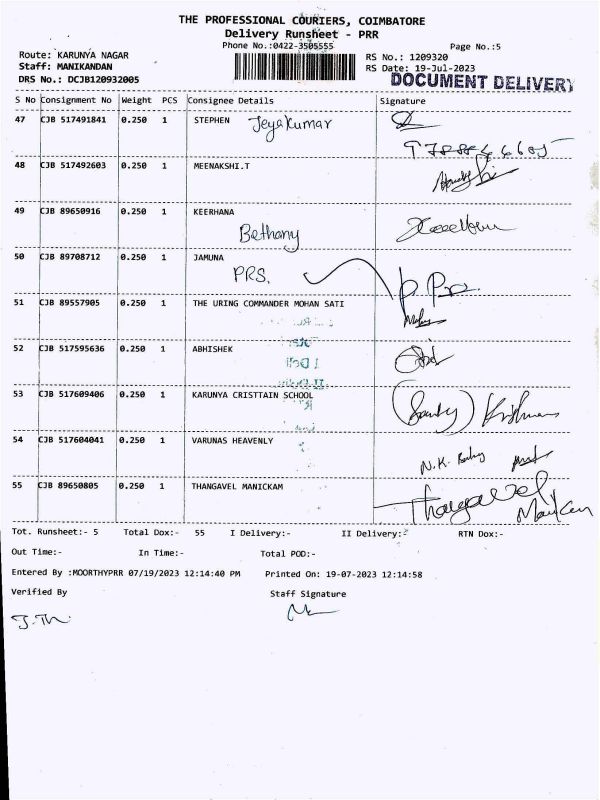 THE PROFESSIONAL COURIERS, COIMBATORE
Delivery Runsheet - PRR
Phone No.:0422-3505555
Page No.:5
Route: KARUNYA NAGAR
RS No.: 1209320
Staff: MANIKANDAN
RS Date: 19-Jul-2023
DRS No.: DCJB120932005
DOCUMENT DELIVERY
S No Consignment No Weight PCS Consignee Details Signature
47 CJB 517491841 0.250 1 STEPHEN Jeyakumar
48 CJB 517492603 0.250 1 MEENAKSHI.T
49 CJB 89650916 0.250 1 KEERHANA
Bethany
50 CJB 89708712 0.250 1 JAMUNA
PRS.
51 CJB 89557905 0.250 1 THE URING COMMANDER MOHAN SATI
52 CJB 517595636 0.250 1 ABHISHEK
53 CJB 517609406 0.250 1 KARUNYA CRISTTAIN SCHOOL
54 CJB 517604041 0.250 1 VARUNAS HEAVENLY
N.K.
55 CJB 89650805 0.250 1 THANGAVEL MANICKAM
Thangavel
Tot. Runsheet:- 5 Total Dox:- 55 I Delivery:- II Delivery:- RTN Dox:-
Out Time:- In Time:- Total POD:-
Entered By :MOORTHYPRR 07/19/2023 12:14:40 PM Printed On: 19-07-2023 12:14:58
Verified By Staff Signature